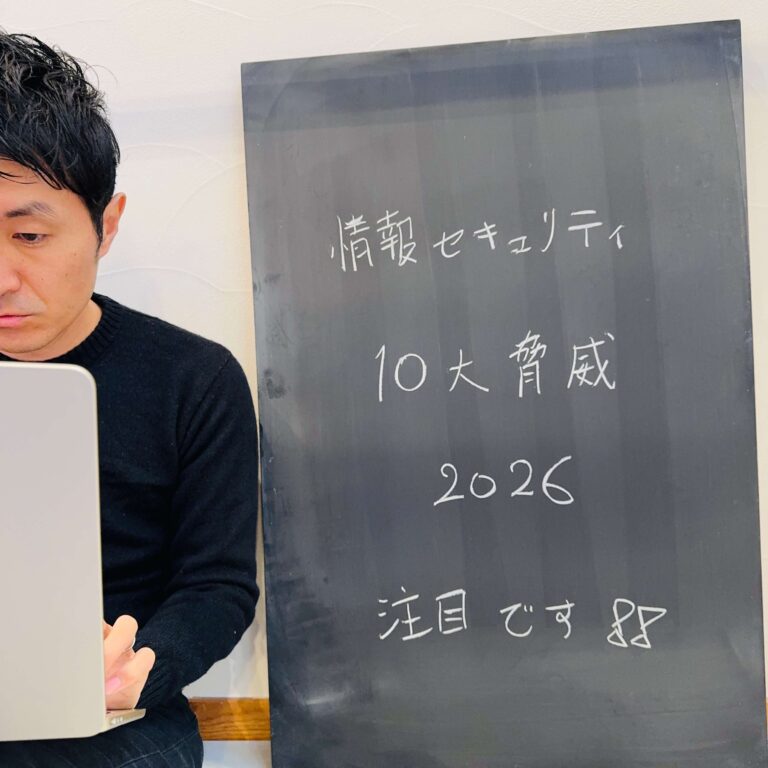 情報セキュリティ
10大脅威
2026
注目です!!